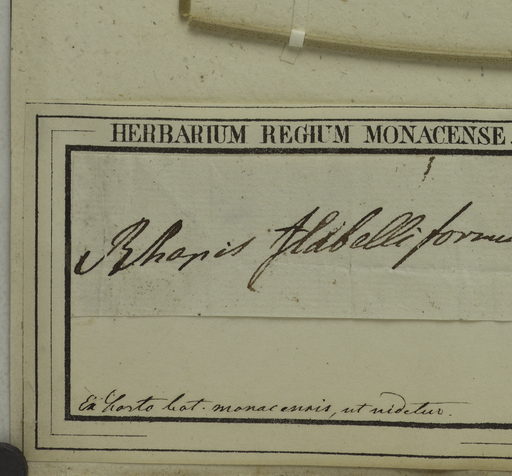 HERBARIUM REGIUM MONACENSE.
Rhapis flabelliformis
Ex horto bot. monacensis, ut videtur.